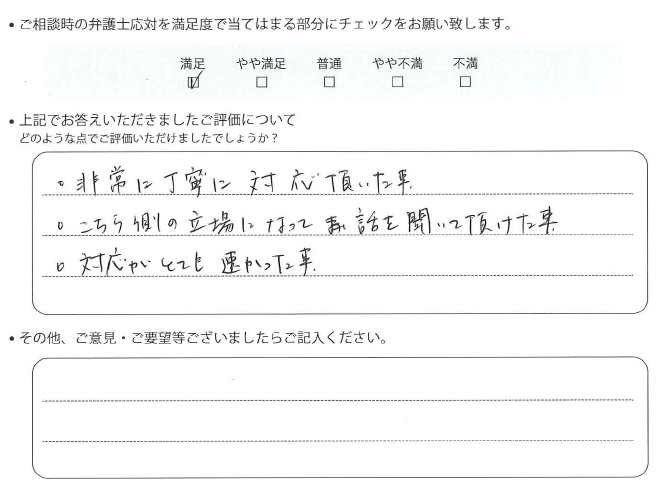 • ご相談時の弁護士応対を満足度で当てはまる部分にチェックをお願い致します。
満足 やや満足 普通 やや不満 不満
☑ □ □ □ □
• 上記でお答えいただきましたご評価について
どのような点でご評価いただけましたでしょうか？
。非常に丁寧に対応頂いた事
。こちら側の立場になってお話を聞いて頂けた事
。対応がとても速かった事
• その他、ご意見・ご要望等ございましたらご記入ください。